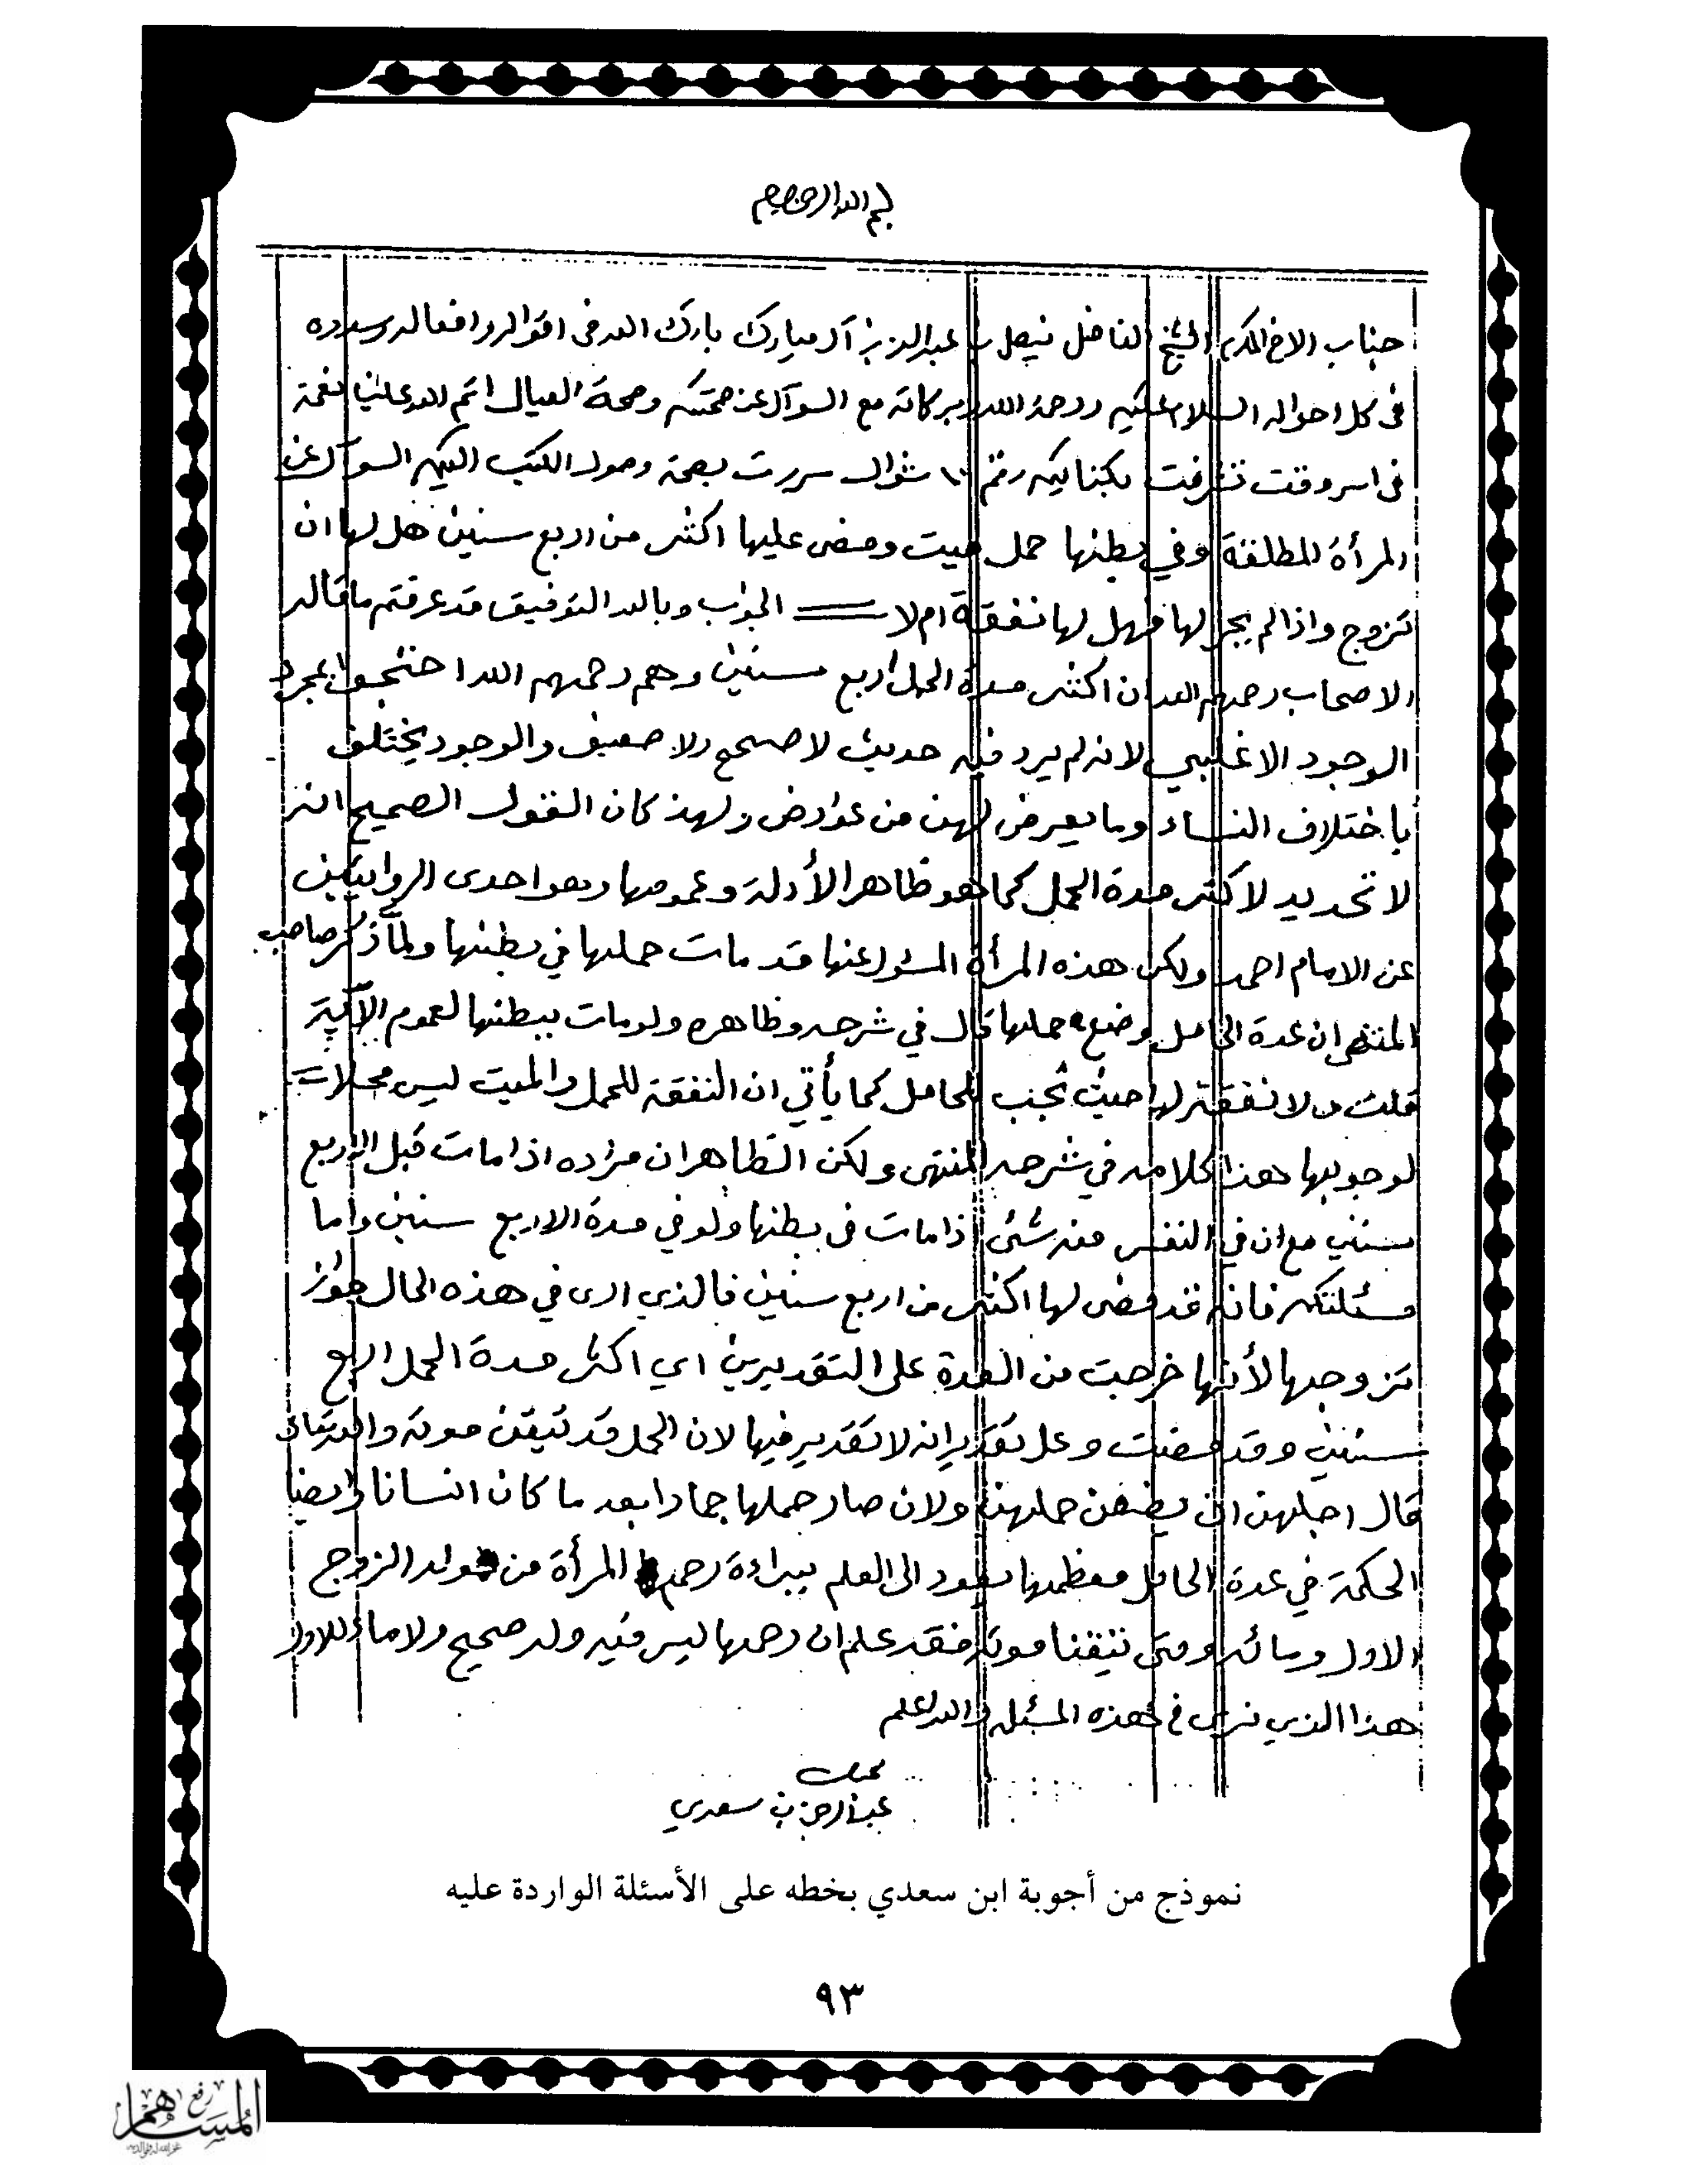 بسم الله الرحمن الرحيم
جناب الاخ المكرم الشيخ الفاضل فيصل بن عبد العزيز آل مبارك بارك الله في اقواله وافعاله وسدده
في كل احواله السلام عليكم ورحمة الله وبركاته مع السوآل عن صحتكم وصحة العيال اتم الله علينا نعمته
في اسر وقت تشرفت بكتابكم رقم شوال سررت بصحة وصول الكتب اليكم السوآل عن
المرأة المطلقة وفي بطنها حمل ميت ومضى عليها اكثر من اربع سنين هل لها ان
تزوج واذا لم يجز لها فهل لها نفقة ام لا الجواب وبالله التوفيق قد عرفتم ما قاله
الاصحاب رحمهم الله ان اكثر مدة الحمل اربع سنين وهم رحمهم الله احتجوا بمجرد
الوجود الاغلبي لانه لم يرد فيه حديث لا صحيح ولا ضعيف والوجود يختلف
باختلاف النساء وما يعرض لهن من عوارض ولهذ كان القول الصحيح انه
لا تحديد لاكثر مدة الحمل كما هو ظاهر الأدلة وعمومها وهو احدى الروايتين
عن الامام احمد ولكن هذه المرأة المسئول عنها قد مات حملها في بطنها ولمّا ذكر صاحب
المنتهى ان عدة الحامل وضع حملها قال في شرحه وظاهره ولو مات ببطنها لعموم الآية
قلت ولا نفقة لها حيث تجب للحامل كما يأتي ان النفقة للحمل والميت ليس محلا
لوجوبها هذا كلامه في شرحه المنتهى ولكن الظاهر ان مراده اذا مات قبل الاربع
سنين مع ان في النفس منه شئ اذا مات في بطنها ولو في مدة الاربع سنين واما
مسئلتكم فانه قد مضى لها اكثر من اربع سنين فالذي ارى في هذه الحال جواز
تزوجها لأنها خرجت من العدة على التقديرين اي اكثر مدة الحمل اربع
سنين وقد مضت وعلى تقدير انه لا تقدير فيها لان الحمل قد تيقن موته والله تعالى
قال اجلهن ان يضعن حملهن ولان صار حملها جمادا بعد ما كان انسانا وايضا
الحكمة في عدة الحامل معظمها يعود الى العلم ببراءة رحم المرأة من ولد الزوج
الاول ومائه ومتى تيقنا موته فقد علم ان رحمها ليس فيه ولد صحيح ولا ماء للاول
هذا الذي نرى في هذه المسئلة والله اعلم
محبك
عبد الرحمن بن سعدي
نموذج من أجوبة ابن سعدي بخطه على الأسئلة الواردة عليه
٩٣
رفع
المساهم